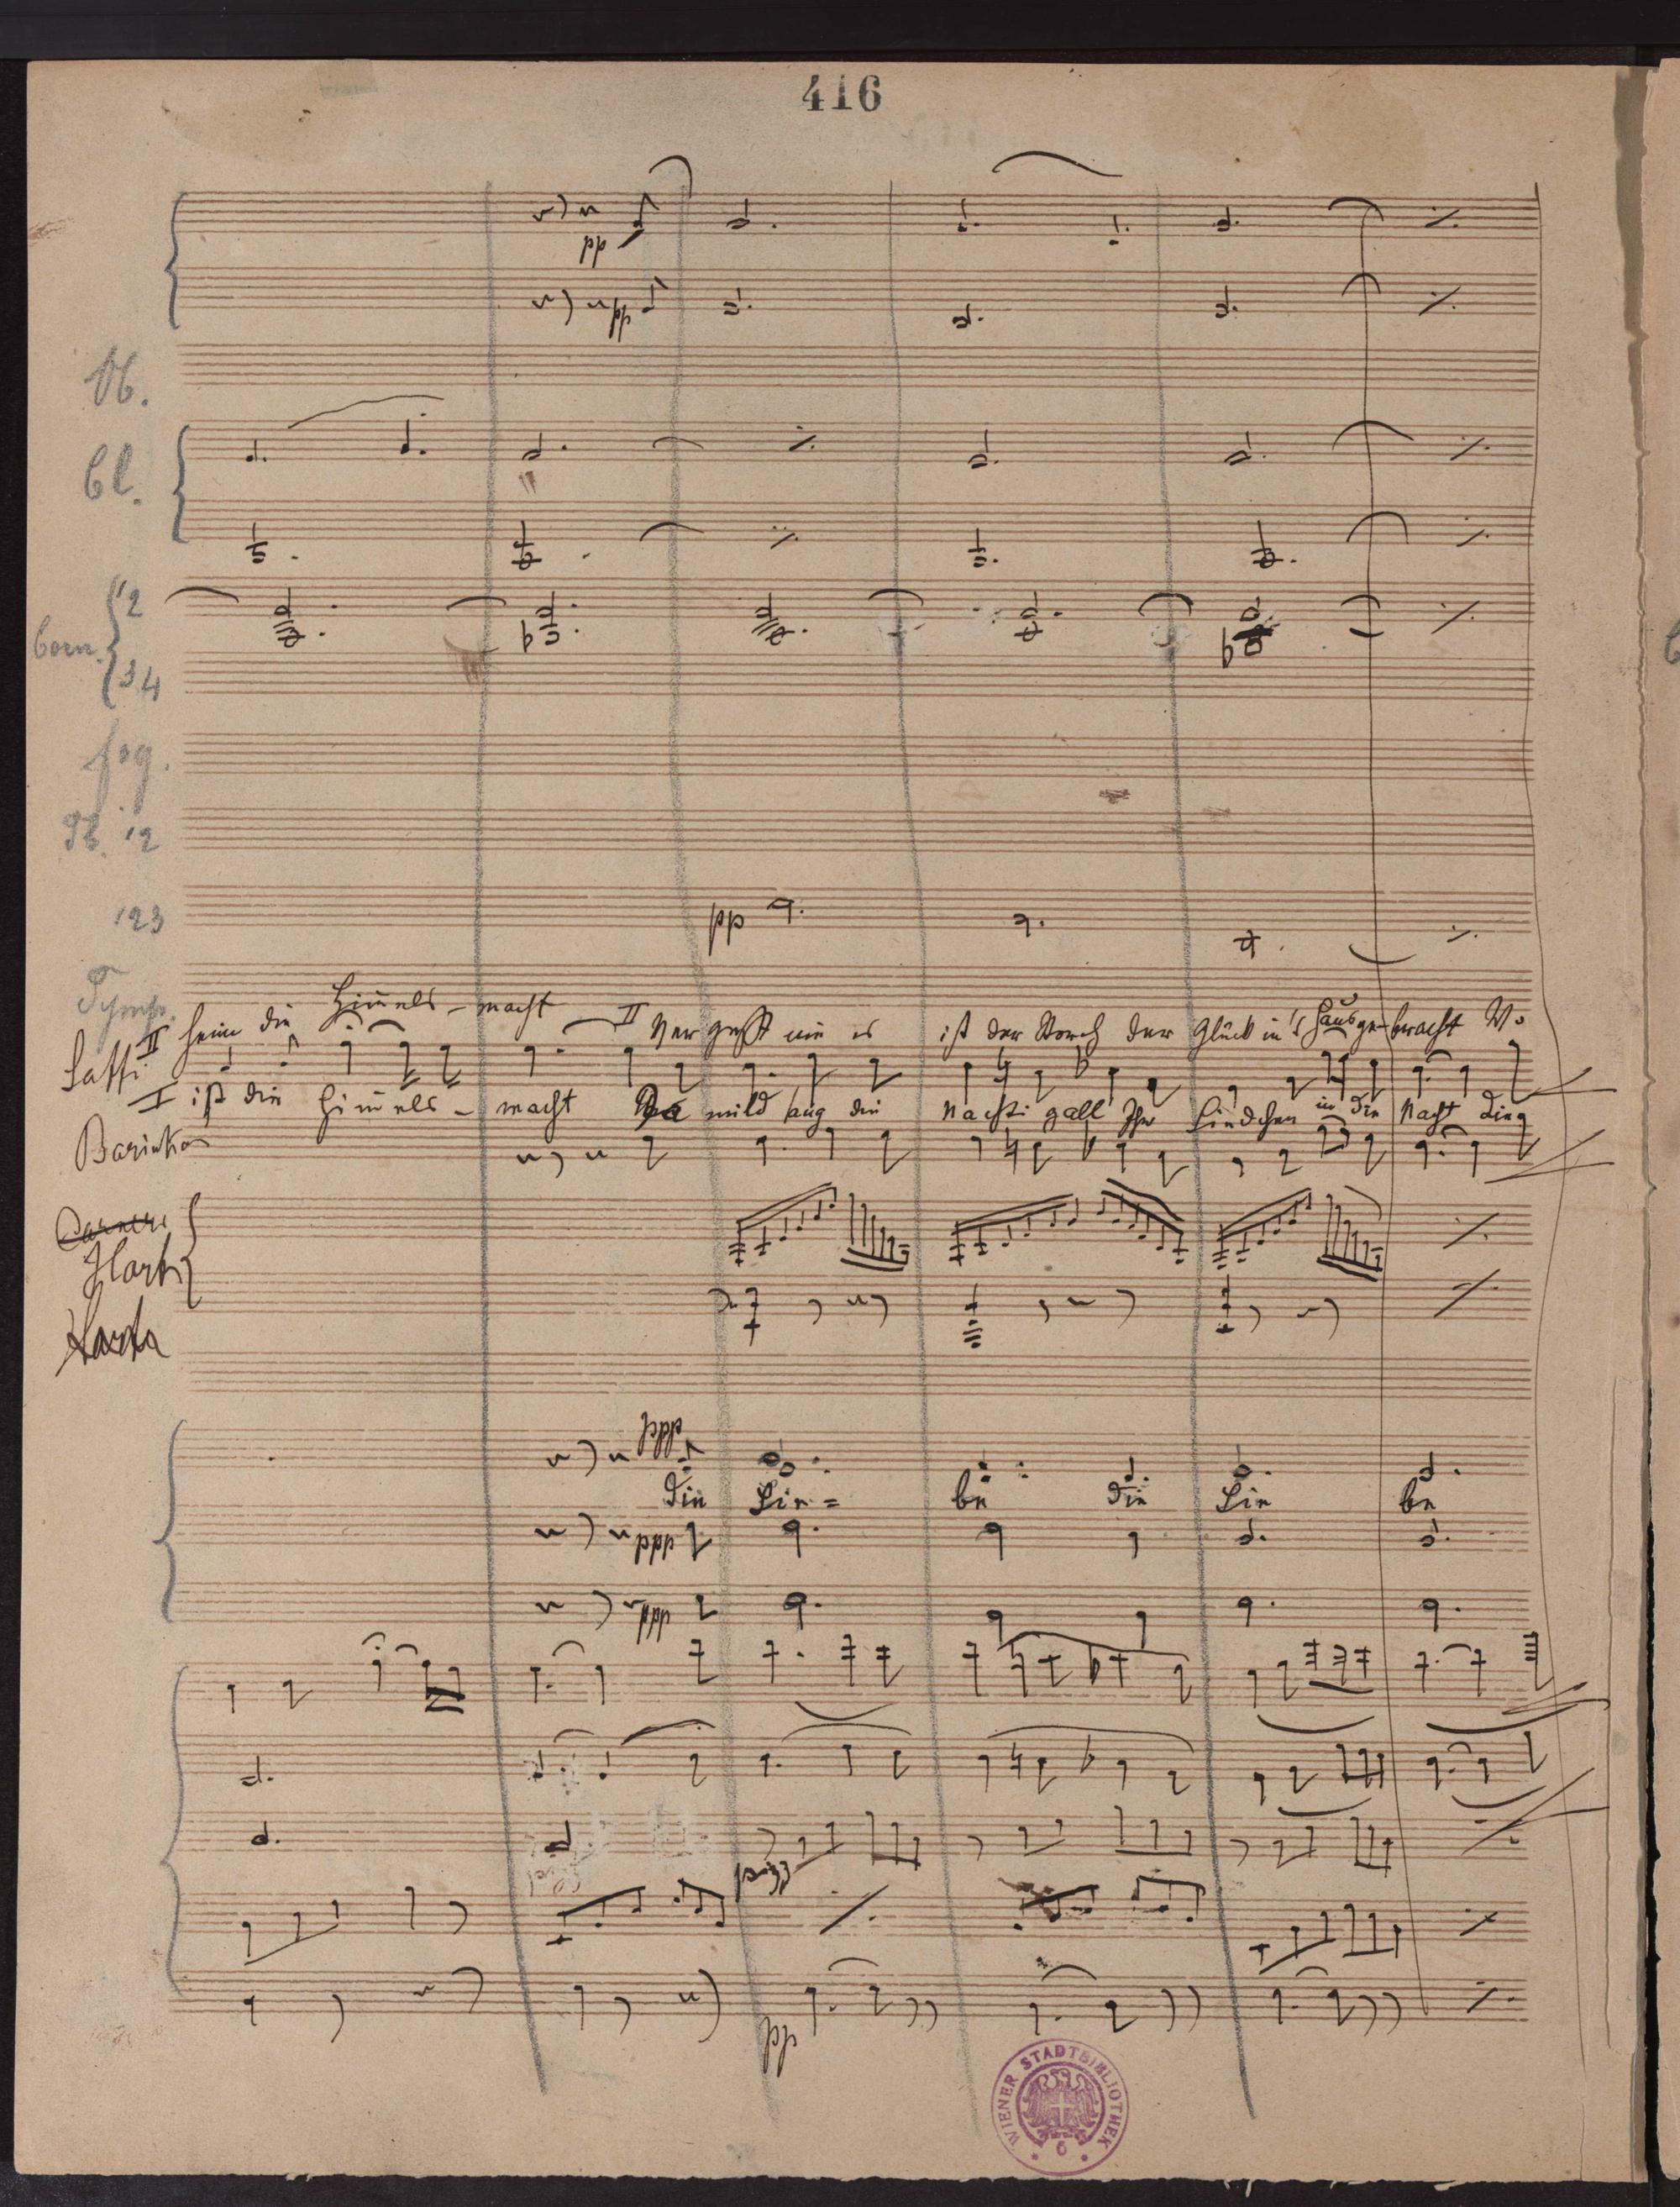 416
pp
pp
Ob.
Cl.
Corn. 12
34
fag.
12
123
pp
Tymp.
Saffi
II heim die Himels - macht II Vergesst nie es ist der Storch der Glück in's Haus gebracht Wo
I ist die Himels - macht mild sang die Nachti gall Ihr Liedchen in die Nacht die
Barinka
Harfe
ppp
die Lie = be die Lie be
ppp
ppp
pizz
pp
WIENER STADTBIBLIOTHEK
6